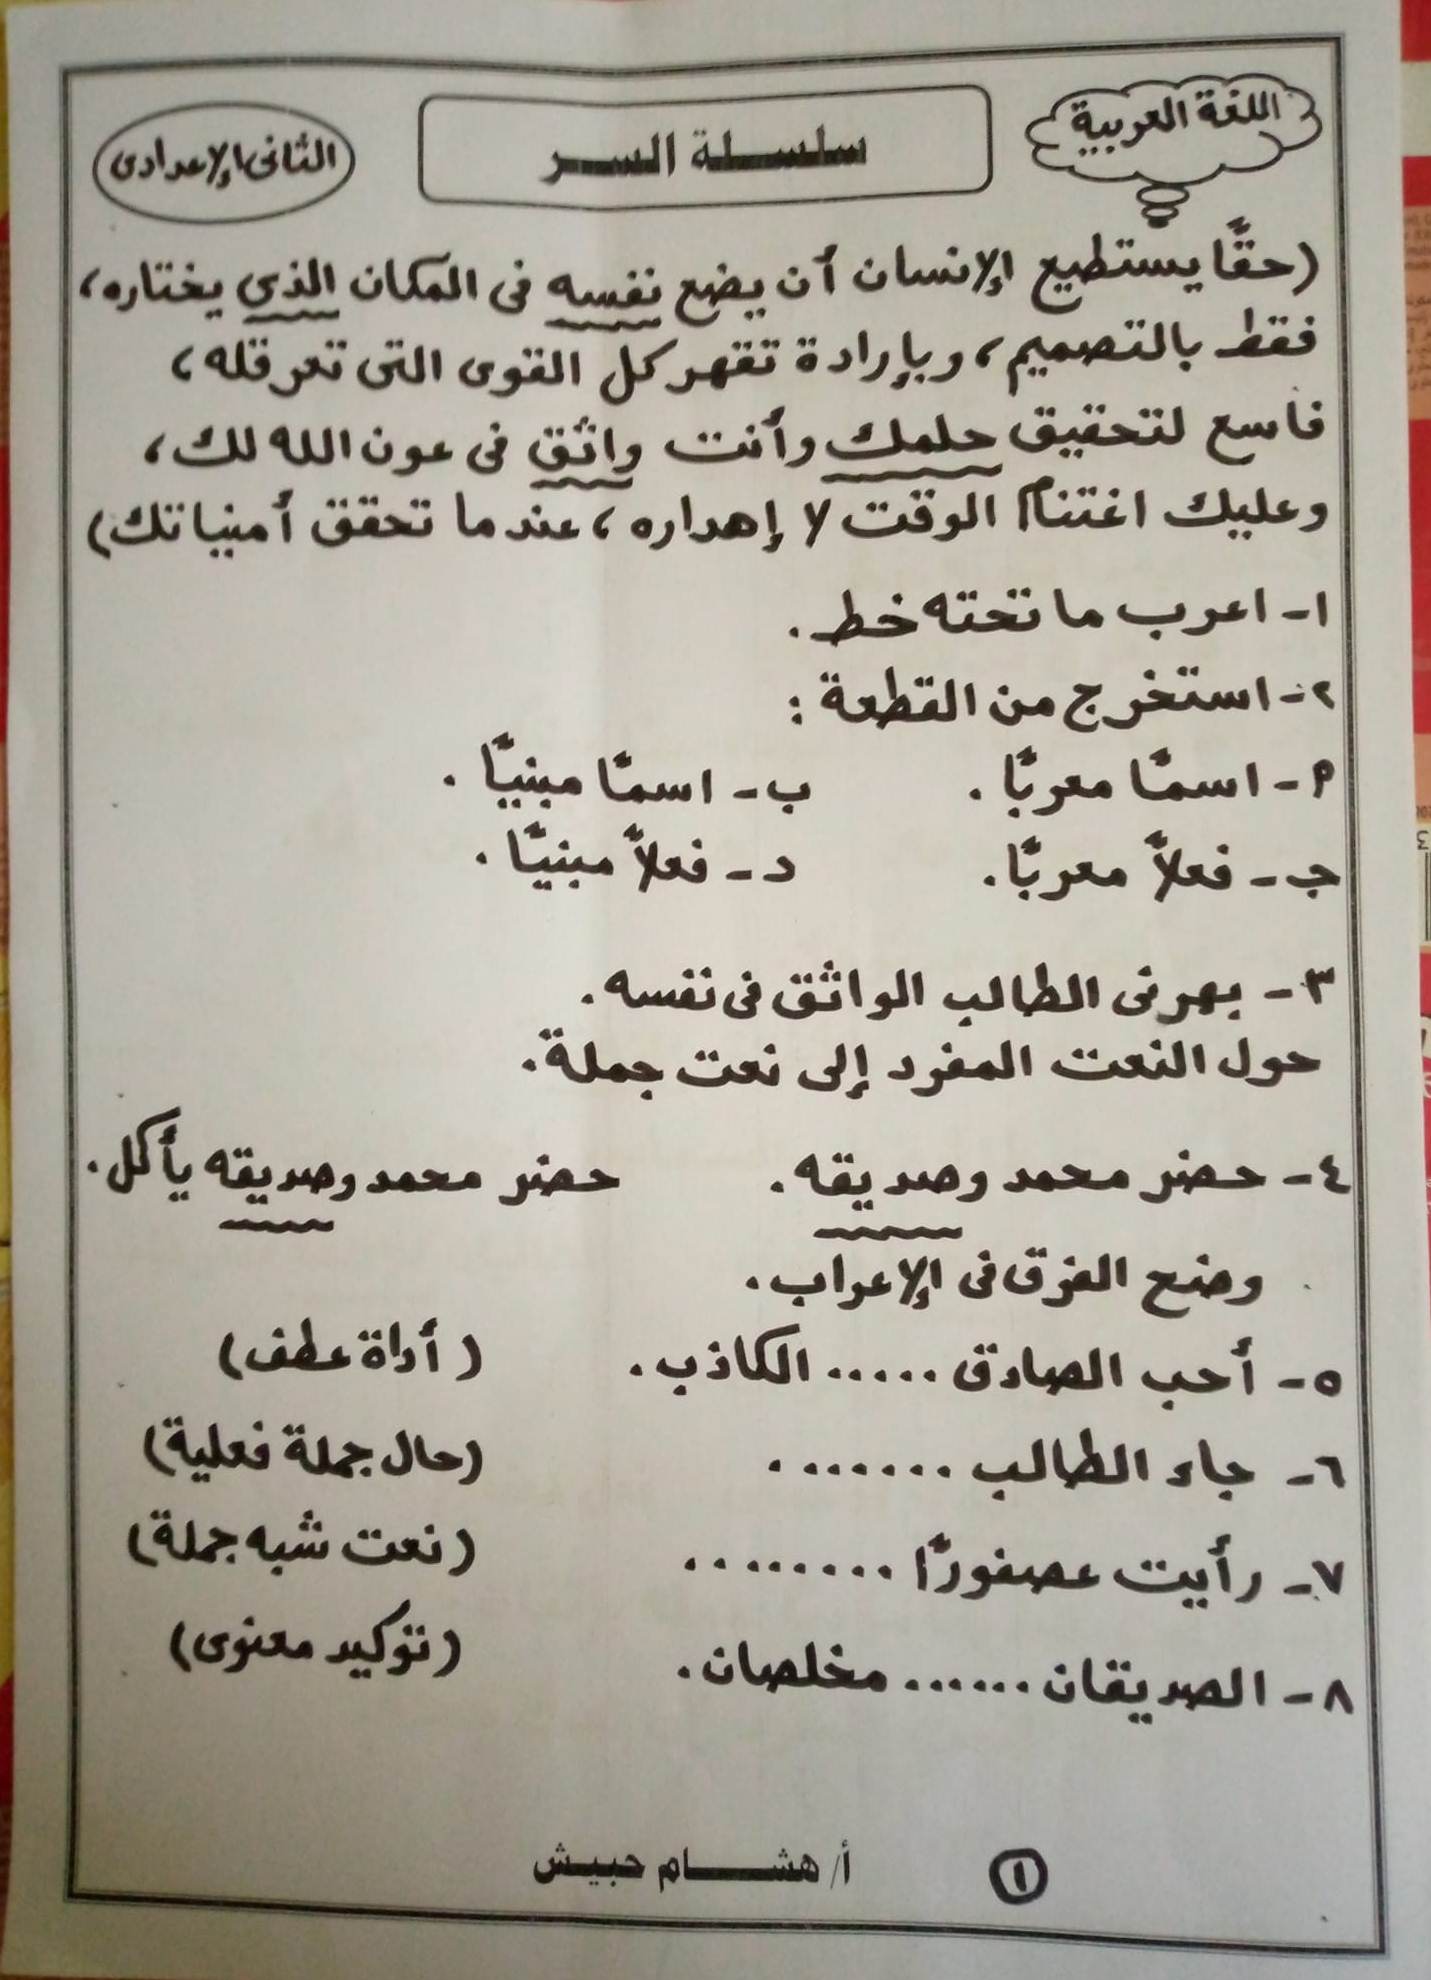 اللغة العربية
سلسلة السر
الثانى الإعدادى
(حقًا يستطيع الإنسان أن يضع نفسه فى المكان الذي يختاره،
فقط بالتصميم، وبإرادة تقهر كل القوى التى تعرقله،
فاسع لتحقيق حلمك وأنت واثق فى عون الله لك،
وعليك اغتنام الوقت لا إهداره، عندما تحقق أمنياتك)
١- اعرب ما تحته خط.
٢- استخرج من القطعة:
٩- اسمًا معربًا. ب- اسمًا مبنيًا.
جـ- فعلاً معربًا. د- فعلاً مبنيًا.
٣- بهرنى الطالب الواثق فى نفسه.
حول النعت المفرد إلى نعت جملة.
٤- حضر محمد وصديقه. حضر محمد وصديقه يأكل.
وضح الفرق فى الإعراب.
٥- أحب الصادق ..... الكاذب. (أداة عطف)
٦- جاء الطالب ....... (حال جملة فعلية)
٧- رأيت عصفورًا ........ (نعت شبه جملة)
٨- الصديقان ...... مخلصان. (توكيد معنوى)
١
أ/ هشام حبيش